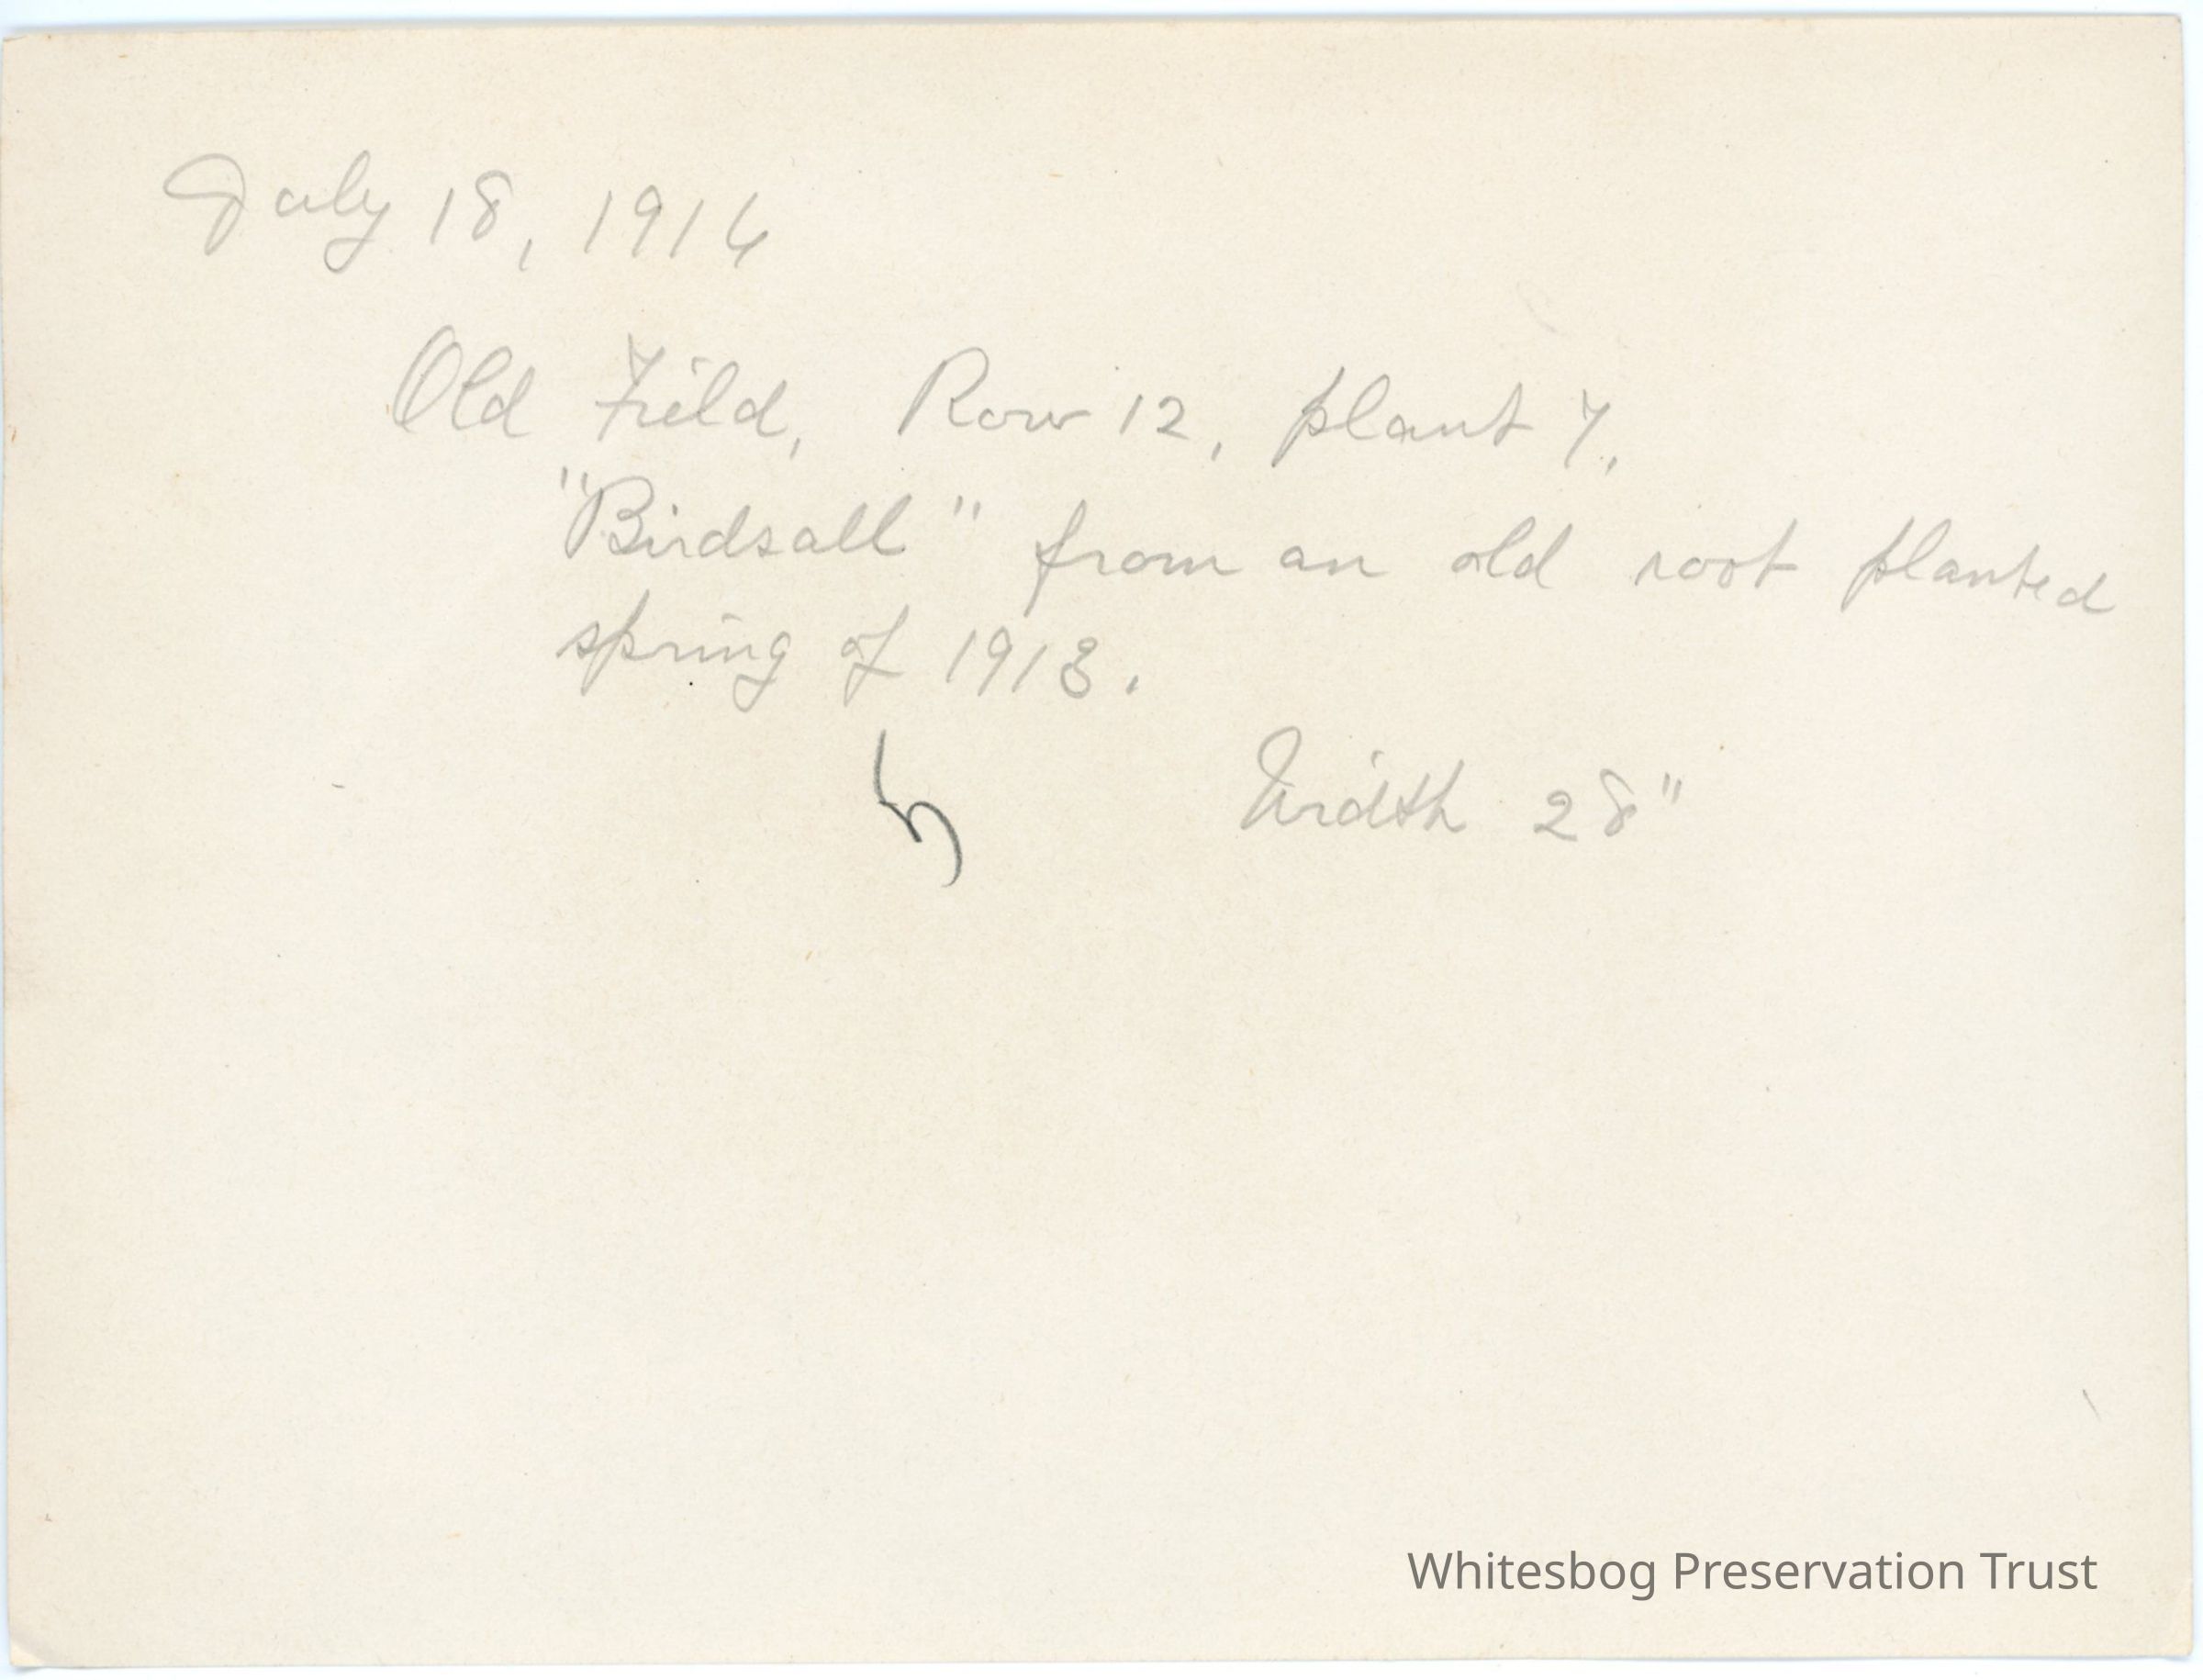 July 18, 1916
Old Field, Row 12, plant 7.
"Birdsall" from an old root planted
spring of 1913.
Width 28"
Whitesbog Preservation Trust